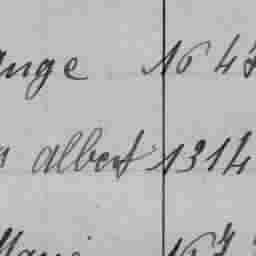 ange 16 47
albert 1314
Marie 167